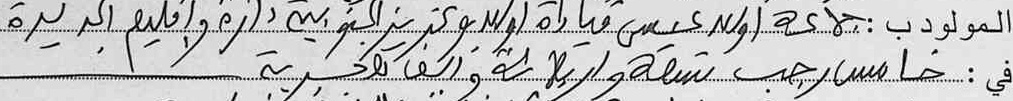 المولود ب: جماعة اولاد عيسى قيادة اولاد بوعزيز الجنوبية دائرة واقليم الجديدة
في: خامس رجب تسعة وأربعمائة وألف هجرية